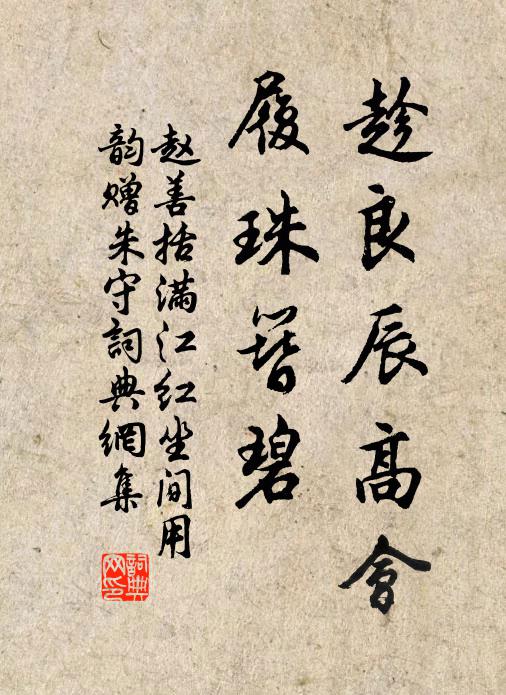 趁良辰高會
履珠簪碧
赵善括满江红坐间用
韵赠朱守詞典網集
詞典
网印